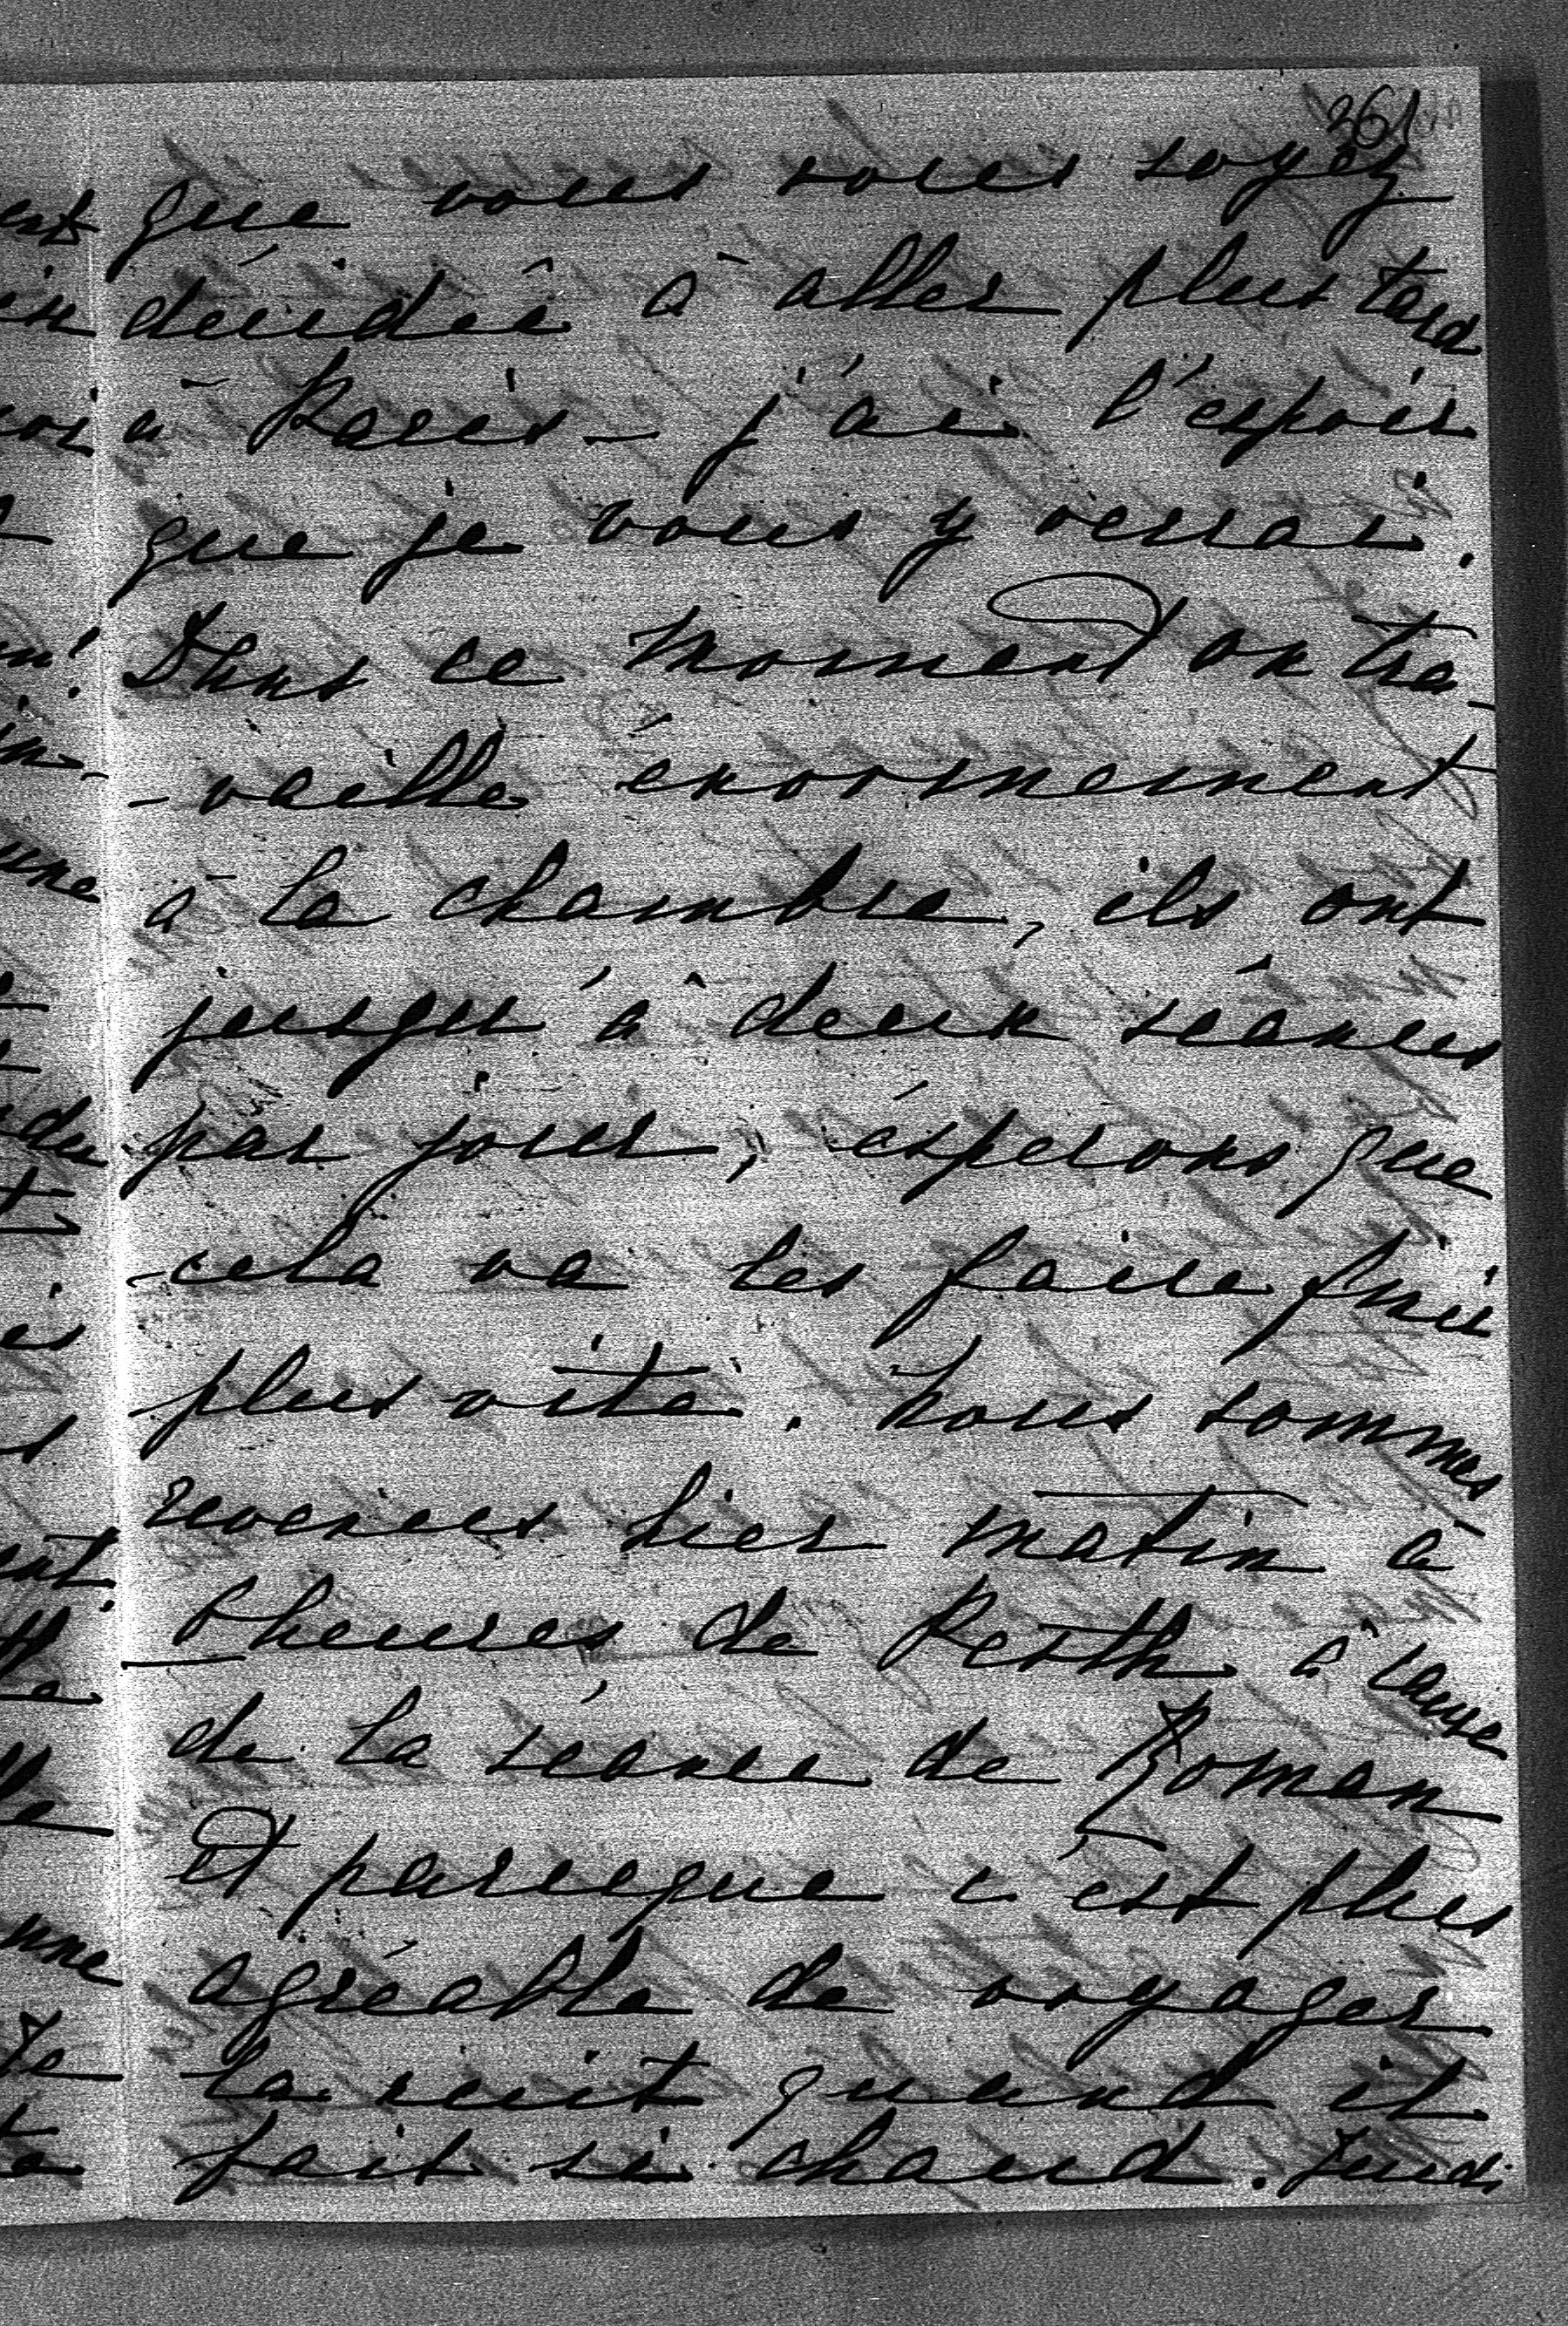 261
que vous vous soyez
décidée à aller plus tard
à Paris – j'ai l'espoir
que je vous y verrai.
Dans ce moment on tra-
-vaille énormement
à la chambre, ils ont
jusqu'à deux séances
par jour, ésperons que
cela va les faire finir
plus vite. Nous sommes
revenus hier matin à
heures de Pesth à cause
de la séance de Roman
et parceque c'est plus
agréable de voyager
la nuit quand il
fait si chaud. Jeudi